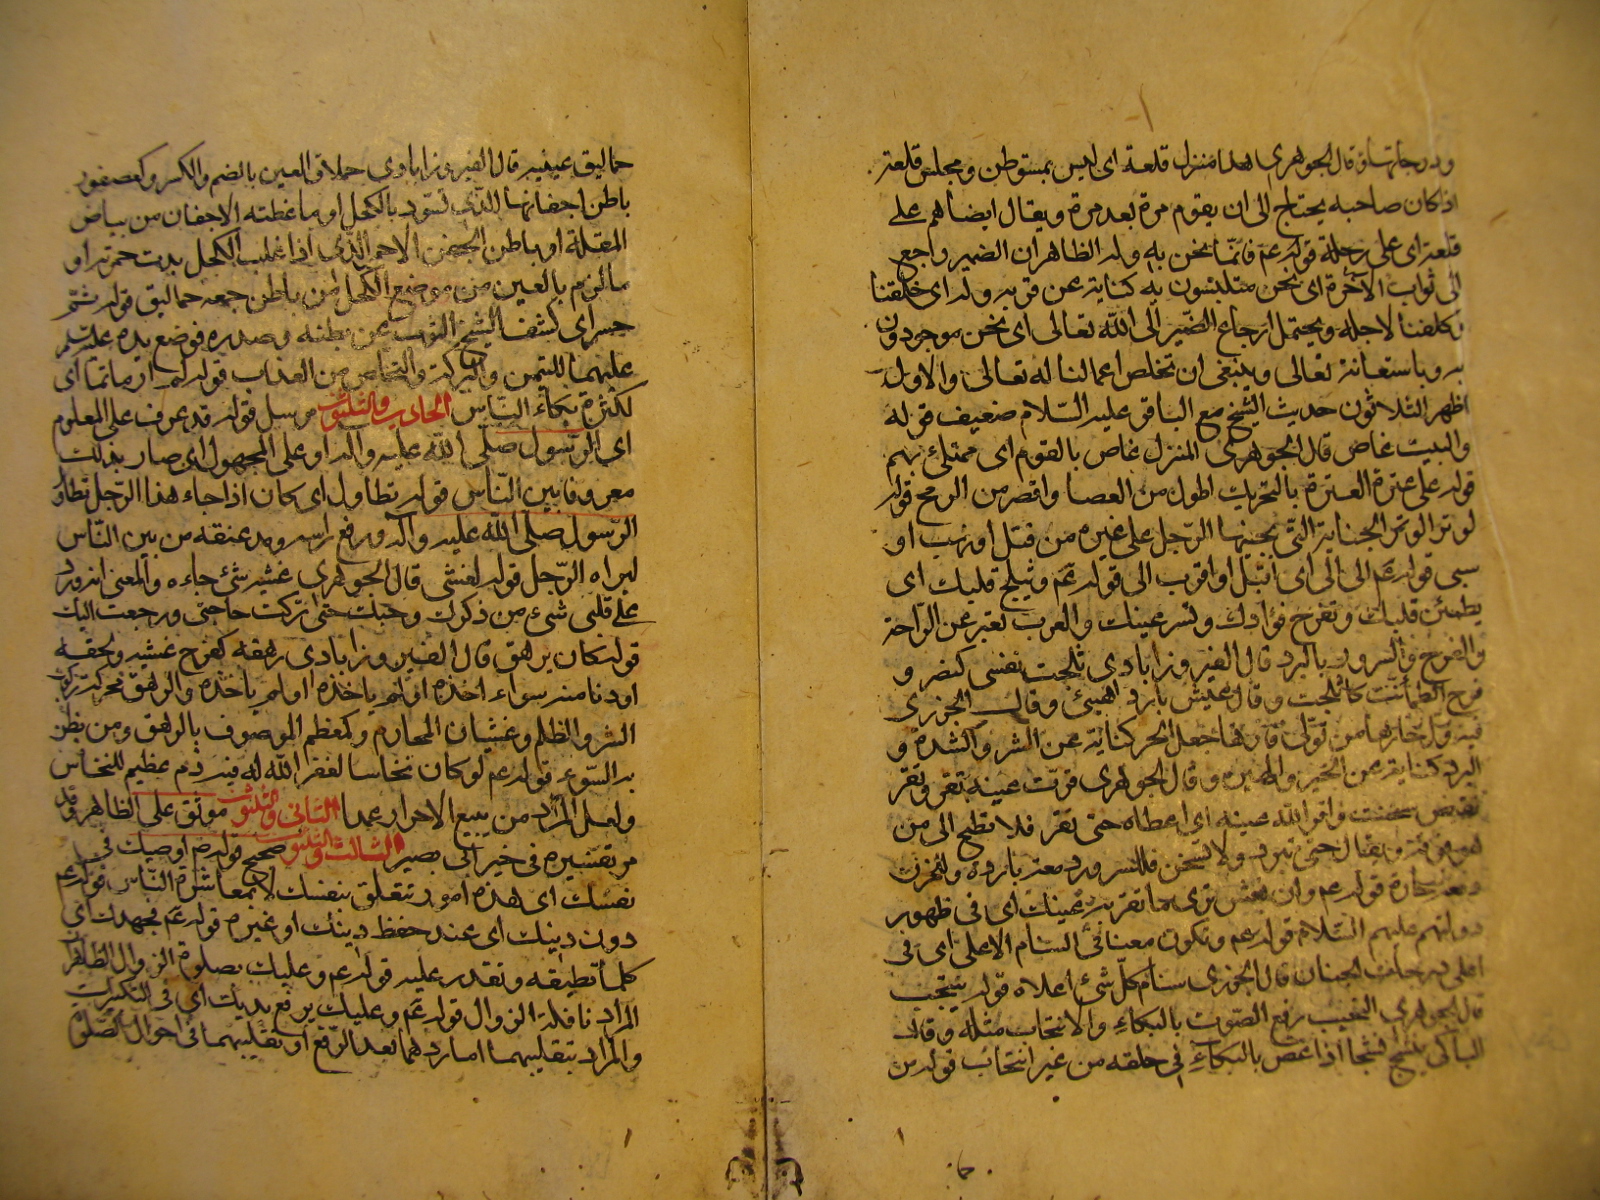 ودرجاتها وقال الجوهري هذا منزل قلعة اى ليس بمستوطن ومجلس قلعة
اذا كان صاحبه يحتاج الى ان يقوم مرة بعد مرة ويقال ايضا هم على
قلعة اى على رحلة قوله عم فانما نحن به وله الظاهر ان الضمير راجع
الى ثواب الآخرة اى نحن متلبسون به كناية عن قربه وله اى خلقنا
وكلفنا لاجله ويحتمل ارجاع الضمير الى الله تعالى اى نحن موجودون
به وباستعانته تعالى وينبغى ان تخلص اعمالنا له تعالى والاول
اظهر الثلاثون حديث الشيخ مع الباقر عليه السلام ضعيف قوله
والبيت غاص قال الجوهرى المنزل غاص بالقوم اى ممتلئ بهم
قوله على عنزة العنزة بالتحريك اطول من العصا واقصر من الرمح قوله
لو تر الوتر الجناية التى يجنيها الرجل على غيره من قتل او نهب او
سبى قوله عم الى الى اى اقبل او اقرب الى قوله عم وثلج قلبك اى
يطمئن قلبك وتفرح فؤادك وتسر عينك والعرب تعبر عن الراحة
والفرح والسرور بالبرد قال الفيروزابادى ثلجت نفسى كنصر و
فرح اطمأنت كاثلجت وقال عيش بارد هنيئ وقال الجزرى
فيه ول حارها من تولى قارها جعل الحر كناية عن الشر والشدة و
البرد كناية عن الخير والهين وقال الجوهرى قرت عينه تقر وتقر
نقيض سخنت واقر الله عينه اى اعطاه حتى تقر فلا تطمح الى من
هو فوقه ويقال حتى تبرد ولا تسخن فللسرور دمعة باردة وللحزن
دمعة حارة قوله عم وان اعش ترى ما تقر به عينك اى فى ظهور
دولتهم عليهم السلام قوله عم وتكون معنا فى السنام الاعلى اى فى
اعلى درجات الجنان قال الجزرى سنام كل شئ اعلاه قوله ينتحب
قال الجوهرى النحيب رفع الصوت بالبكاء والانتحاب مثله وقال
الباكى ينشج نشجا اذا غص بالبكاء فى حلقه من غير انتحاب قوله من
حما
حماليق عينيه قال الفيروزاباوى حملاق العين بالضم والكسر وكعصفور
باطن اجفانها الذى تسود بالكحل او ما غطته الاجفان من بياض
المقلة او باطن الجفن الاحمر الذى اذا غلب الكحل بدت حمرته او
ما لزم بالعين من موضع الكحل من باطن جمعه حماليق قوله ثم
حسر اى كشف الشيخ الثوب عن بطنه وصدره فوضع يده عليه السلم
عليهما للتيمن والبركة والتخلص من العذاب قوله لم ار ماتما اى
لكثرة بكاء الناس الحادى والثلثون مرسل قوله قد عرف على المعلوم
اى الرسول صلى الله عليه واله او على المجهول اى صار بذلك
معروفا بين الناس قوله تطاول اى كان اذا جاء هذا الرجل تطاول
الرسول صلى الله عليه وآله ورفع راسه ومد عنقه من بين الناس
ليراه الرجل قوله لغشى قال الجوهرى غشيه شئ جاءه والمعنى انه ورد
على قلبى شئ من ذكرك وحبك حتى تركت حاجتى ورجعت اليك
قوله كان يرهق قال الفيروزابادى رهقه كفرح غشيه ولحقه
او دنا منه سواء اخذه او لم ياخذه او لم ياخذه والرهق محركة ركوب
الشر والظلم وغشيان المحارم وكمعظم الموصوف بالرهق ومن يظن
به السوء قوله عم لو كان نخاسا لغفر الله له فيه ذم عظيم للنخاس
ولعل المراد من يبيع الاحرار عمدا الثانى والثلثون موثق على الظاهر وقد
مر تفسيره فى خبر ابى بصير الثالث والثلثون صحيح قوله عم اوصيك فى
نفسك اى هذه امور تتعلق بنفسك لا بمعاشرة الناس قوله عم
دون دينك اى عند حفظ دينك او غيره قوله عم بجهدك اى
كلما تطيقه وتقدر عليه قوله عم وعليك بصلوة الزوال الظاهر
المراد نافلة الزوال قوله عم وعليك برفع يديك اى فى التكبيرات
والمراد بتقليبهما اما ردهما بعد الرفع او تقليبهما فى احوال الصلوة